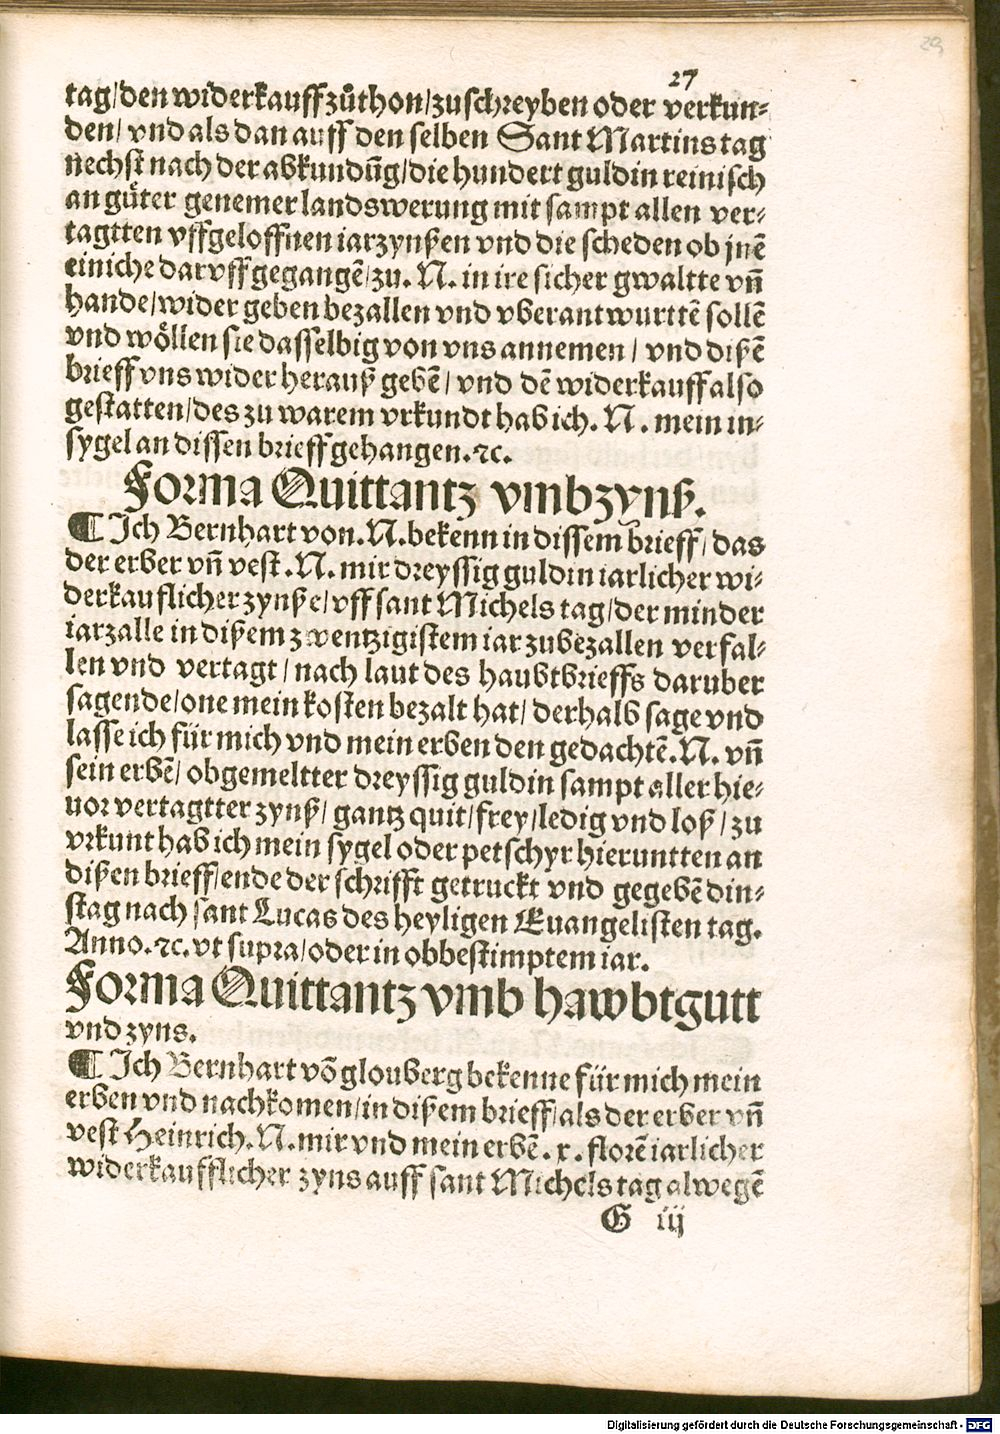 29
27
tag/den widerkauff zůthon/zuschreyben oder verkun-
den/ vnd als dan auff den selben Sant Martins tag
nechst nach der abkundūg/die hundert guldin reinisch
an gůter genemer landswerung mit sampt allen ver-
tagtten vffgeloffnen iarzynßen vnd die scheden ob jnē
einiche darvff gegangē/zu. N. in ire sicher gwaltte vñ
hande/wider geben bezallen vnd vberantwurttē sollē
vnd wőllen sie dasselbig von vns annemen / vnd dißē
brieff vns wider herauß gebē/ vnd dē widerkauff also
gestatten/des zu warem vrkundt hab ich. N. mein in-
sygel an dissen brieff gehangen.⁊c.
Forma Quittantz vmbzynß.
¶ Ich Bernhart von. N. bekenn in dissem brieff/ das
der erber vñ vest .N. mir dreyssig guldin iarlicher wi-
derkauflicher zynße/vff sant Michels tag/der minder
iarzalle in dißem zwentzigistem iar zubezallen verfal-
len vnd vertagt/ nach laut des haubtbrieffs daruber
sagende/one mein kosten bezalt hat/ derhalb sage vnd
lasse ich für mich vnd mein erben den gedachtē. N. vñ
sein erbē/ obgemeltter dreyssig guldin sampt aller hie-
uor vertagtter zynß/ gantz quit/frey/ledig vnd loß/ zu
vrkunt hab ich mein sygel oder petschyr hieruntten an
dißen brieff/ende der schrifft getruckt vnd gegebē din-
stag nach sant Lucas des heyligen Euangelisten tag.
Anno.⁊c. vt supra/oder in obbestimptem iar.
Forma Quittantz vmb hawbtgutt
vnd zyns.
¶ Ich Bernhart vō glouberg bekenne für mich mein
erben vnd nachkomen/in dißem brieff/als der erber vñ
vest Heinrich. N. mir vnd mein erbē. x. florē iarlicher
widerkaufflicher zyns auff sant Michels tag alwegē
G iij
Digitalisierung gefördert durch die Deutsche Forschungsgemeinschaft - DFG